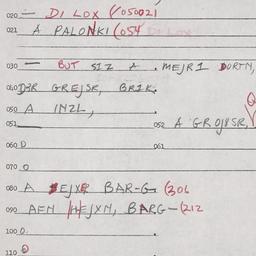 020 — DI LOX (050021
021 A PALONKI (054
030 — BUT SIZ A . MEJRI DORTN,
040 D3R GREJSR, BRIK.
050 A INZL,
051
052 A GROJSR,
060 D 061
070 O
080 A SEJXR BAR-G (306
090 AFN HEJXN, BARG-(212
100 D.
110 D